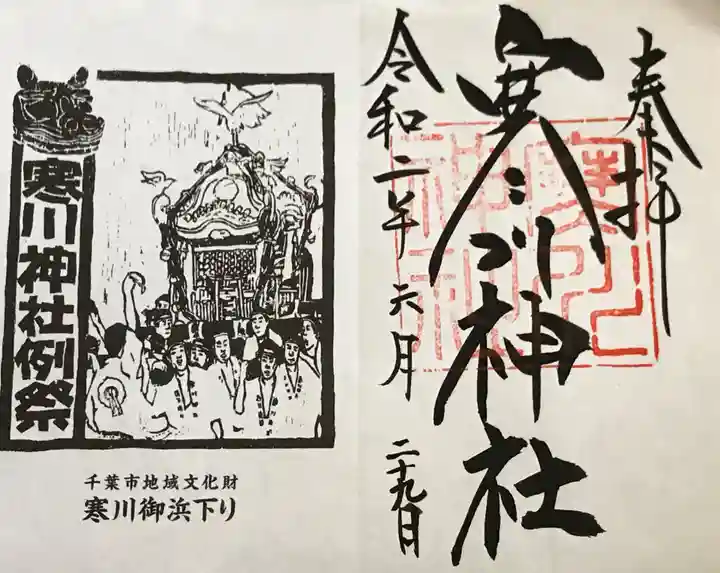 奉拝
寒川神社
令和二年六月二十九日
寒川神社
寒川神社例祭
千葉市地域文化財
寒川御浜下り